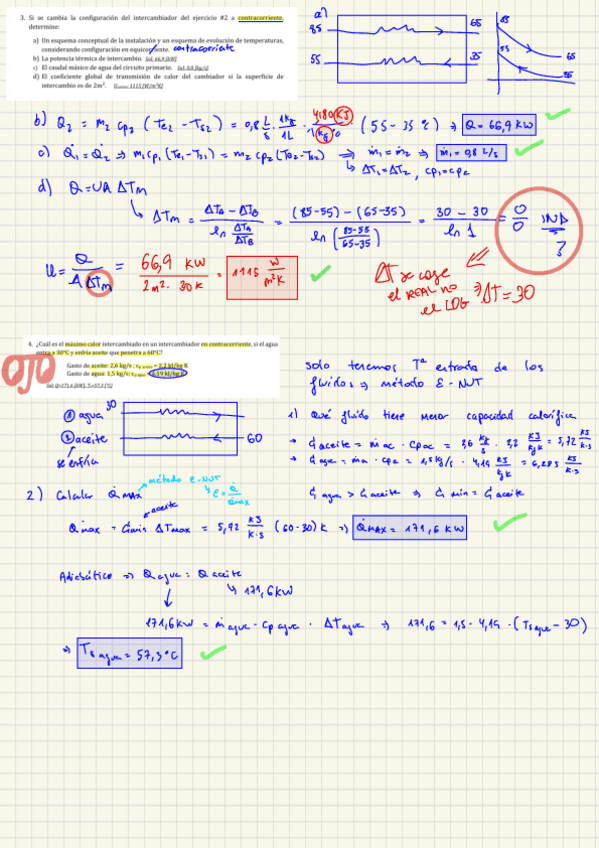 3. Si se cambia la configuración del intercambiador del ejercicio #2 a contracorriente, determine:
a) Un esquema conceptual de la instalación y un esquema de evolución de temperaturas, considerando configuración en equicorriente. contracorriente
b) La potencia térmica de intercambio. Sol: 66.9 [kW]
c) El caudal másico de agua del circuito primario. Sol: 0.8 [kg/s]
d) El coeficiente global de transmisión de calor del cambiador si la superficie de intercambio es de 2m².
a)
85 65
55 35
85
55
65
35
b) Q2 = m2 cp2 (Te2 - Ts2) = 0,8 L/s · 1kg/1L · 4180 KJ/kg°C (55 - 35 °C) => Q = 66,9 KW
c) Q1 = Q2 => m1 cp1 (Te1 - Ts1) = m2 cp2 (Te2 - Ts2) => m1 = m2 => m1 = 0,8 L/s
ΔT1 = ΔT2, cp1 = cp2
d) Q = UA ΔTm
ΔTm = (ΔTA - ΔTB) / ln (ΔTA/ΔTB) = ((85-55) - (65-35)) / ln ((85-55)/(65-35)) = (30 - 30) / ln 1 = 0/0 IND ?
U = Q / (A ΔTm) = 66,9 KW / (2m² · 30K) = 1115 W/m²K
ΔT se coge
el REAL no el LOG => ΔT = 30
OJO
4. ¿Cuál es el máximo calor intercambiado en un intercambiador en contracorriente, si el agua entra a 30°C y enfría aceite que penetra a 60°C?
Gasto de aceite: 2,6 kg/s ; cp aceite = 2,2 kJ/kg K
Gasto de agua: 1,5 kg/s ; cp agua = 4,19 kJ/kg K
Sol: Q=171.6 [kW], Ts=57.3 [°C]
Solo tenemos Tª entrada de los
fluidos => método ε-NUT
① agua 30
② aceite 60
se enfría
1) Qué fluido tiene menor capacidad calorífica
→ Ċ aceite = ṁac · cpac = 2,6 kg/s · 2,2 KJ/kgK = 5,72 KJ/K·s
→ Ċ agua = ṁa · cpa = 1,5 kg/s · 4,19 KJ/kgK = 6,285 KJ/K·s
Ċ agua > Ċ aceite => Ċ min = Ċ aceite
2) Calcular Q MAX → método ε-NUT
ε = Q/Qmax
aceite
Qmax = Ċmin ΔTmax = 5,72 KJ/K·s (60-30) K => QMAX = 171,6 KW
Adiabático => Q agua = Q aceite
171,6 KW
171,6 KW = ṁ agua · cp agua · ΔT agua => 171,6 = 1,5 · 4,19 · (Ts agua - 30)
=> Ts agua = 57,3 °C